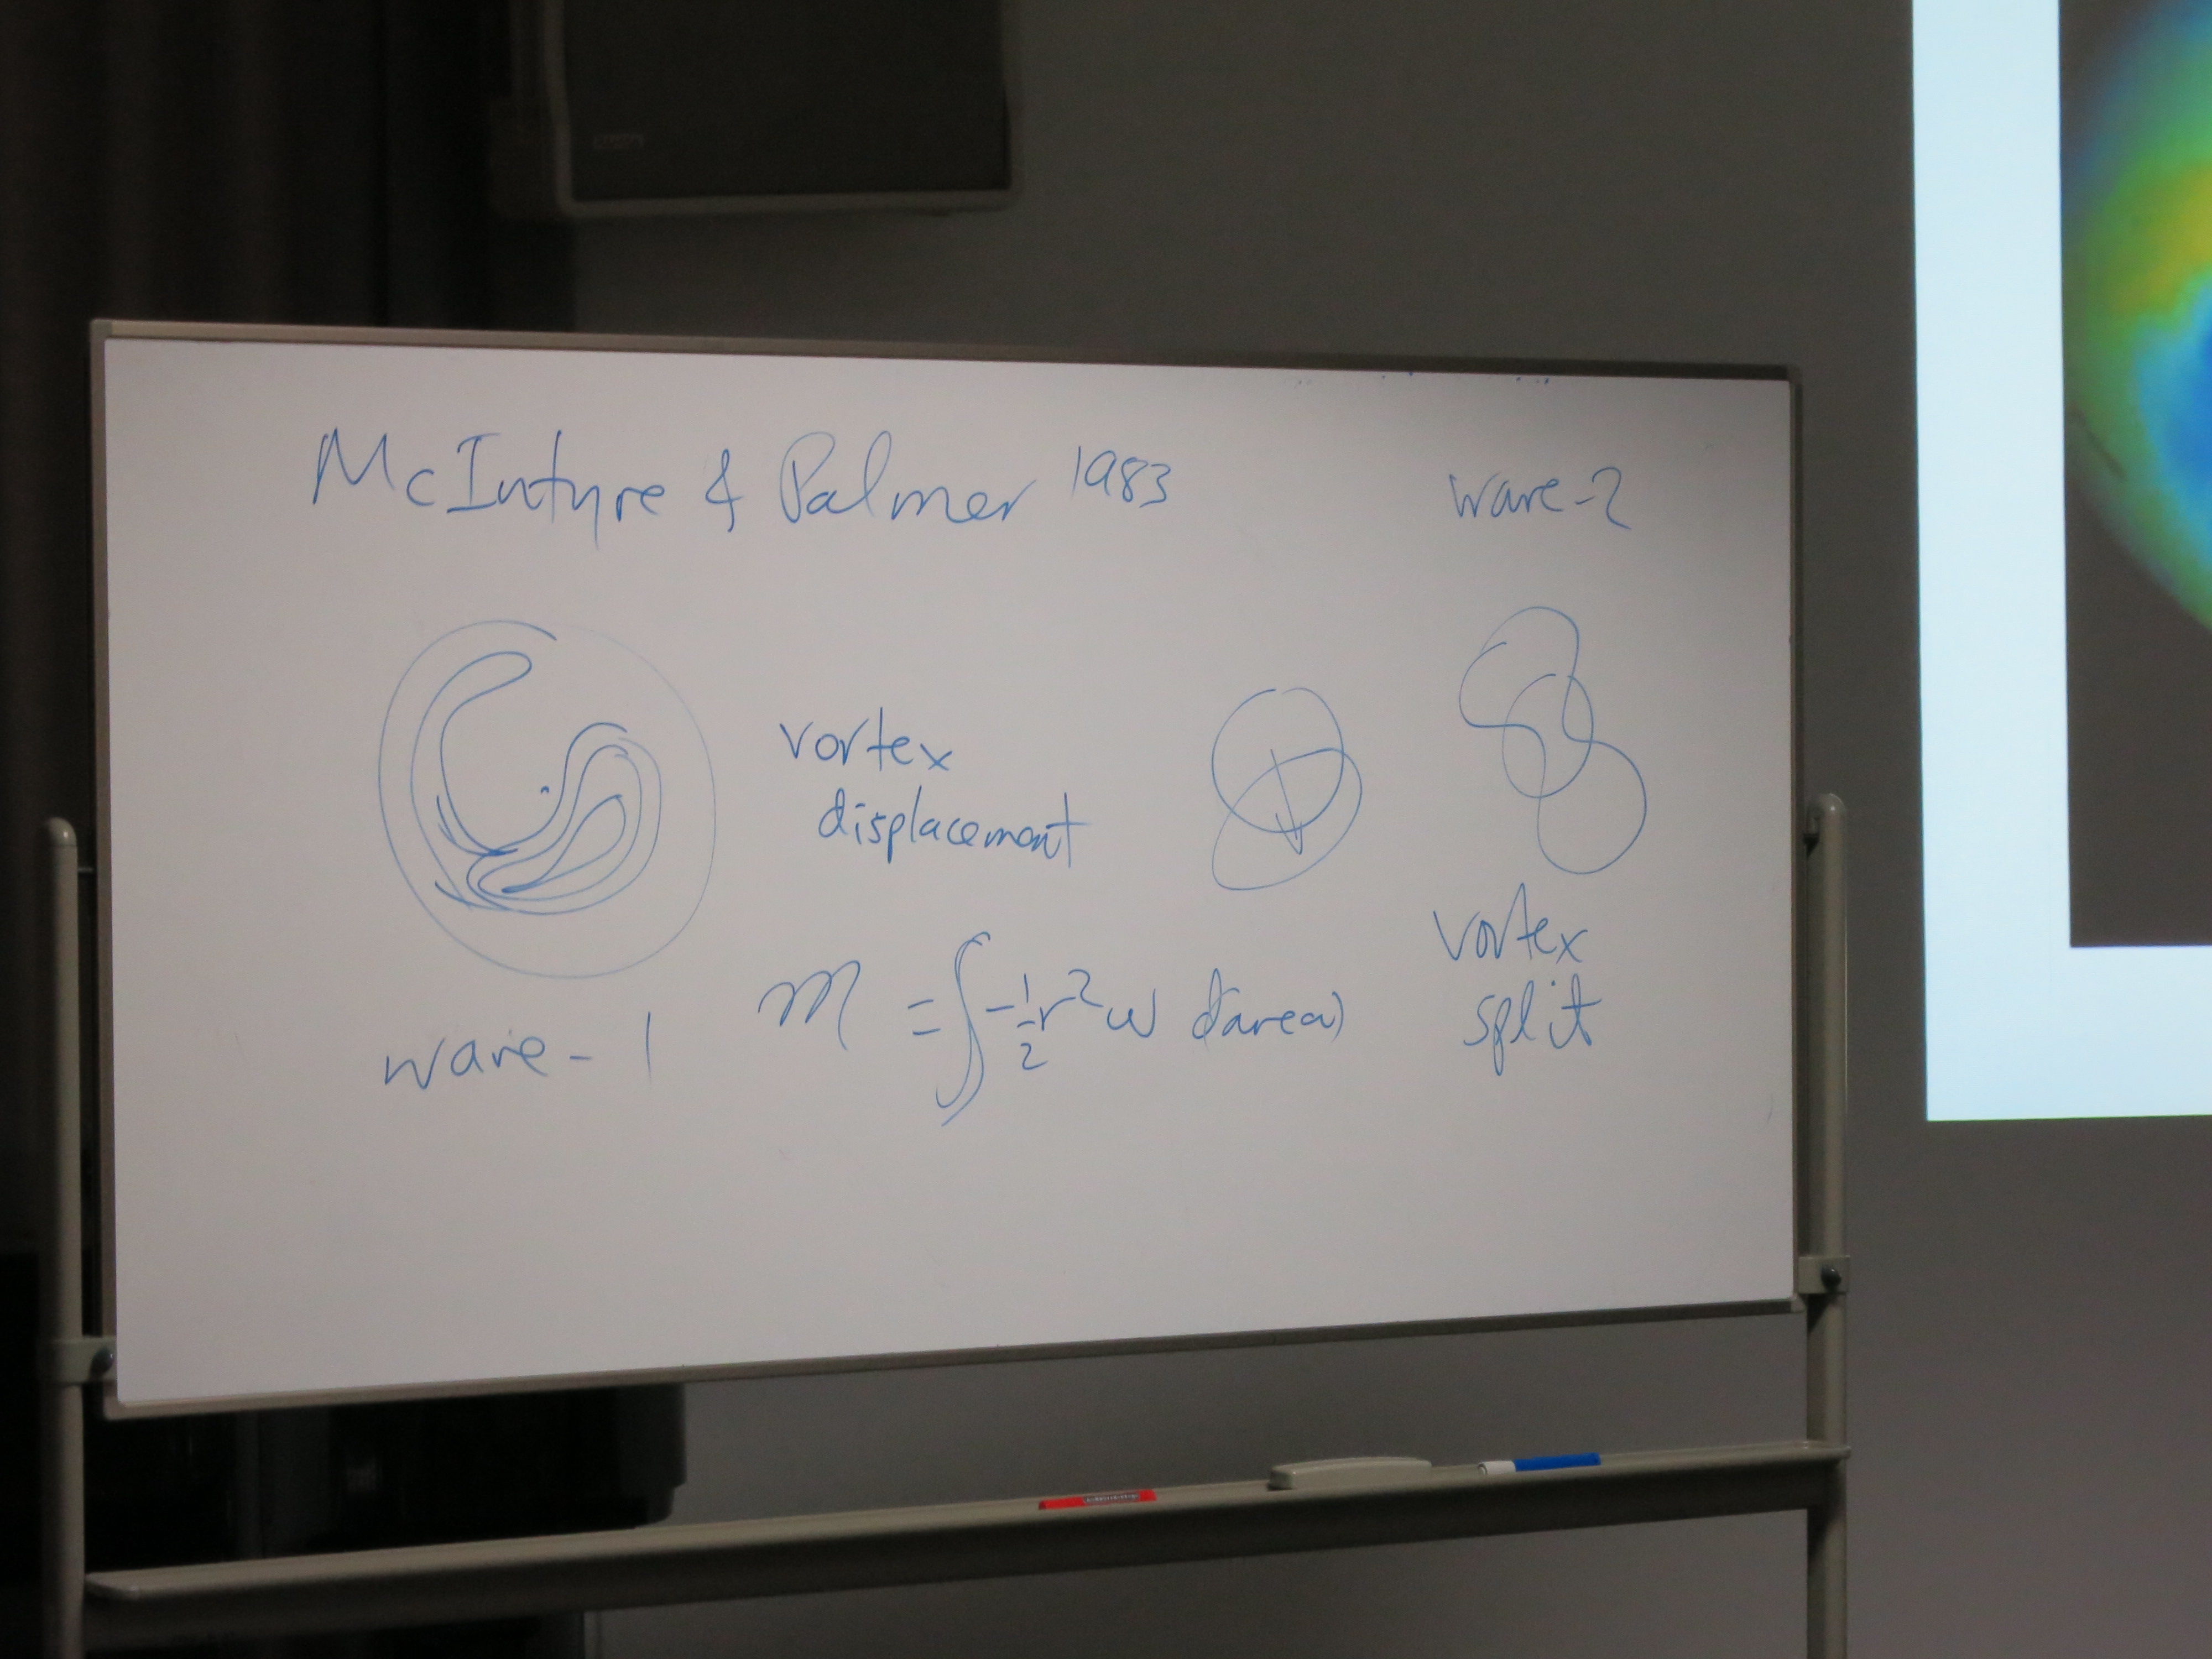 McIntyre & Palmer 1983
wave-2
vortex
displacement
vortex
split
wave-1
M = ∫ -1/2 r² ω d(area)